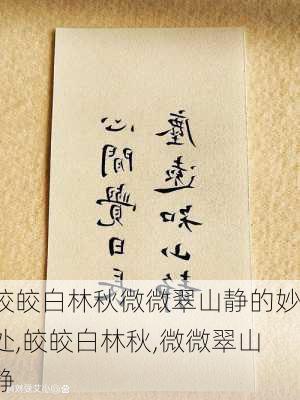 塵遠知山靜
心閒覺日長
皎皎白林秋微微翠山静的妙
处,皎皎白林秋,微微翠山
静